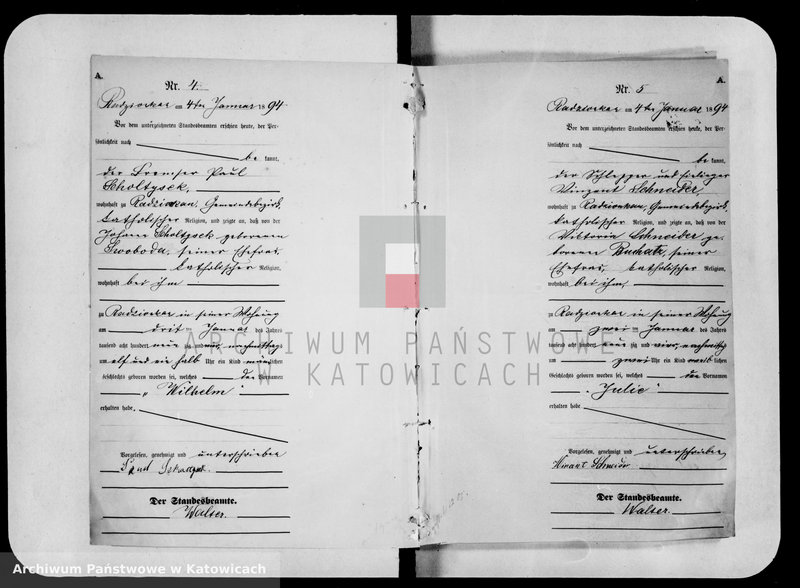 A.
Nr. 4.
Radzionkau am 4ten Januar 1894.
Vor dem unterzeichneten Standesbeamten erschien heute, der Per-
sönlichkeit nach
be kannt,
der Bremser Paul
Scholtyssek,
wohnhaft zu Radzionkau, Gemeindebezirk,
katholischer Religion, und zeigte an, daß von der
Johann Scholtyssek geborenen
Swoboda, seiner Ehefrau,
katholischer Religion,
wohnhaft bei ihm
zu Radzionkau in seiner Wohnung
am drei ten Januar des Jahres
tausend acht hundert neun zig und vier, nachmittags
um elf und ein halb Uhr ein Kind männlichen
Geschlechts geboren worden sei, welches den Vornamen
„Wilhelm"
erhalten habe.
Vorgelesen, genehmigt und unterschrieben
Der Standesbeamte.
Walser.
A.
Nr. 5
Radzionkau am 4ten Januar 1894
Vor dem unterzeichneten Standesbeamten erschien heute, der Per-
sönlichkeit nach
be kannt,
der Schlepper und
Vinzent Schneider,
wohnhaft zu Radzionkau, Gemeindebezirk,
katholischer Religion, und zeigte an, daß von der
Viktoria Schneider ge-
borenen Buchatz, seiner
Ehefrau, katholischer Religion,
wohnhaft bei ihm,
zu Radzionkau in seiner Wohnung
am zwei ten Januar des Jahres
tausend acht hundert neun zig und vier, nachmittags
um zwei Uhr ein Kind weiblichen
Geschlechts geboren worden sei, welches den Vornamen
„Julie"
erhalten habe
Vorgelesen, genehmigt und unterschrieben
Der Standesbeamte.
Walser.
ARCHIWUM PAŃSTWOWE
W KATOWICACH
Archiwum Państwowe w Katowicach